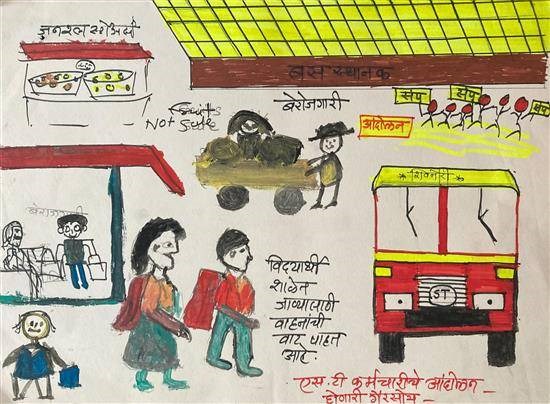 जनरल स्टोअर्स
बस स्थानक
Fruits
Not Sale
बेरोजगारी
आंदोलन
संप
संप
संप
संप
शिवनेरी
बेरोजगारी
विद्यार्थी
शाळेत
जाण्यासाठी
वाहनांची
वाट पाहत
आहे.
ST
एस.टी कर्मचारीचे आंदोलन
होणारी गैरसोय